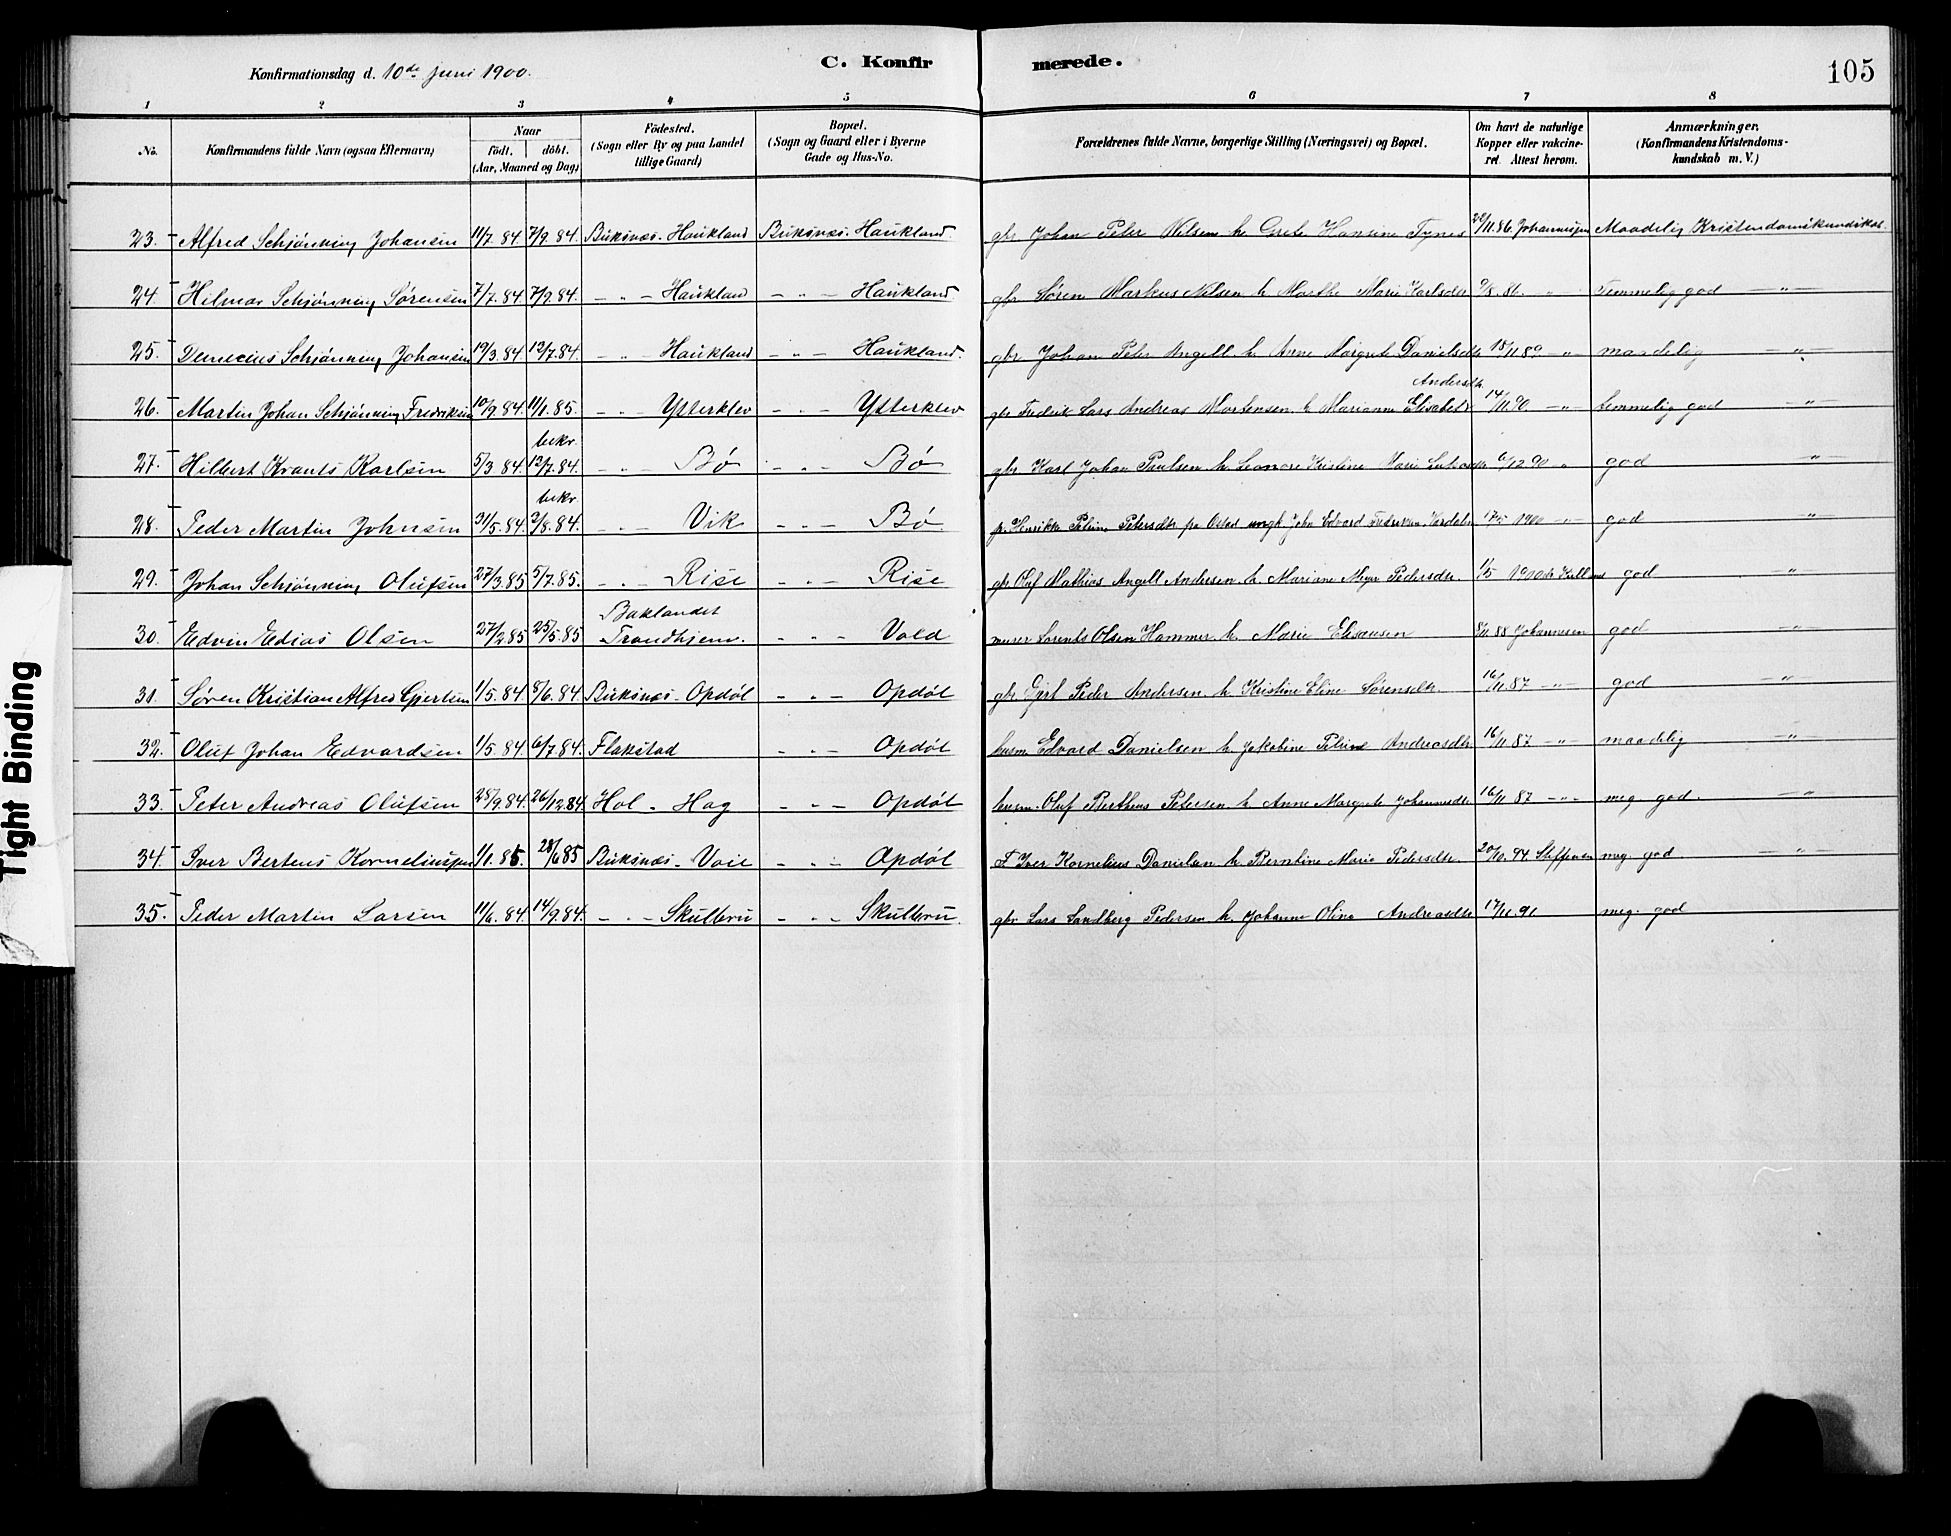 Konfirmationsdag d. 10de juni 1900.
C. Konfirmerede.
105
1 2 3 4 5 6 7 8
No.
Konfirmandens fulde Navn (ogsaa Efternavn)
Naar
födt. döbt.
(Aar, Maaned og Dag)
Födested.
(Sogn eller By og paa Landet
tillige Gaard)
Bopæl.
(Sogn og Gaard eller i Byerne
Gade og Hus-No.
Forældrenes fulde Navne, borgerlige Stilling (Næringsvei) og Bopæl.
Om havt de naturlige
Kopper eller vakcine-
ret. Attest herom.
Anmærkninger.
(Konfirmandens Kristendoms-
kundskab m. V.)
23. Alfred Schjönning Johansen 11/7. 84. 7/9. 84. Buksnæs. Haukland Buksnæs. Haukland. gbr Johan Peter Nilsen h. Grete Hansine Tynes 22/11. 86 Johannesen Maadelig Kristendomskundskab
24. Hilmar Schjönning Sörensen 7/7. 84. 7/9. 84. - " - Haukland - " - Haukland gbr Sören Markus Nilsen h. Marthe Marie Karlsdtr 9/8. 86. - " - Temmelig god - " -
25. Schjönning Johansen 19/3. 84 12/7. 84. - " - Haukland - " - Haukland. gbr Johan Peter Angell h. Anne Margrete Danielsdtr 18/11 89 - " - maadelig - " -
26. Martin Johan Schjönning Fredriksen 10/9. 84. 11/1. 85. - " - Ytterklev - " - Ytterklev gbr Fredrik Lars Andreas Mortensen h. Marianne Elisabet Andersdtr. 14/11. 90. - " - temmelig god - " -
27. Hilbert Krants Karlsen 5/3. 84 bekr. 12/7. 84. - " - Bö - " - Bö gbr Karl Johan Paulsen h. Leonore Kristine Marie 6/12 90 - " - god - " -
28. Peder Martin Johnsen 31/5. 84. bekr. 3/8. 84. - " - Vik - " - Bö p. Henrikke Peline Petersdtr ungk. John Edvard 1900 - " - god - " -
29. Johan Schjönning Olufsen 27/3. 85 5/7. 85. - " - Rise - " - Rise gbr Oluf Mathias Angell Andersen h. Mariane Meyer Pedersdtr. 1/5 1900 god - " -
30. Edvin Edias Olsen 27/2 85 25/5. 85 Baklandet Trondhjem. - " - Vold murer Lorents Olsen Hammer h. Marie Elisausen 8/11. 88 Johannesen god - " -
31. Sören Kristian Alfred Gjertsen 1/5. 84 8/6. 84 Buksnæs - Opdöl - " - Opdöl gbr Gjert Peder Andersen h. Kristine Eline Sörensdtr. 16/11. 87 - " - god - " -
32. Oluf Johan Edvardsen 1/5. 84 6/7. 84. Flakstad - " - Opdöl husm. Edvard Danielsen h. Jakobine Peline Andreasdtr 16/11. 87 - " - maadelig - " -
33. Peter Andreas Olufsen 28/9. 84. 26/12. 84. Hol - Hag - " - Opdöl husm. Oluf Bertheus Petersen h. Anne Margrete Johannesdtr 16/11 87 - " - meg. god. - " -
34. Iver Bertens Korneliussen 1/1. 85. 28/6 85 Buksnæs - Voie - " - Opdöl F. Iver Kornelius Danielsen h. Berntine Marie Pedersdtr. 20/10. 94. Steffensen meg. god. - " -
35. Peder Martin Larsen 11/6. 84. 14/9. 84. - " - Skulbru - " - Skulbru gbr Lars Sandberg Pedersen h. Johanne Olina Andreasdtr 17/11. 91 meg. god
Tight Binding